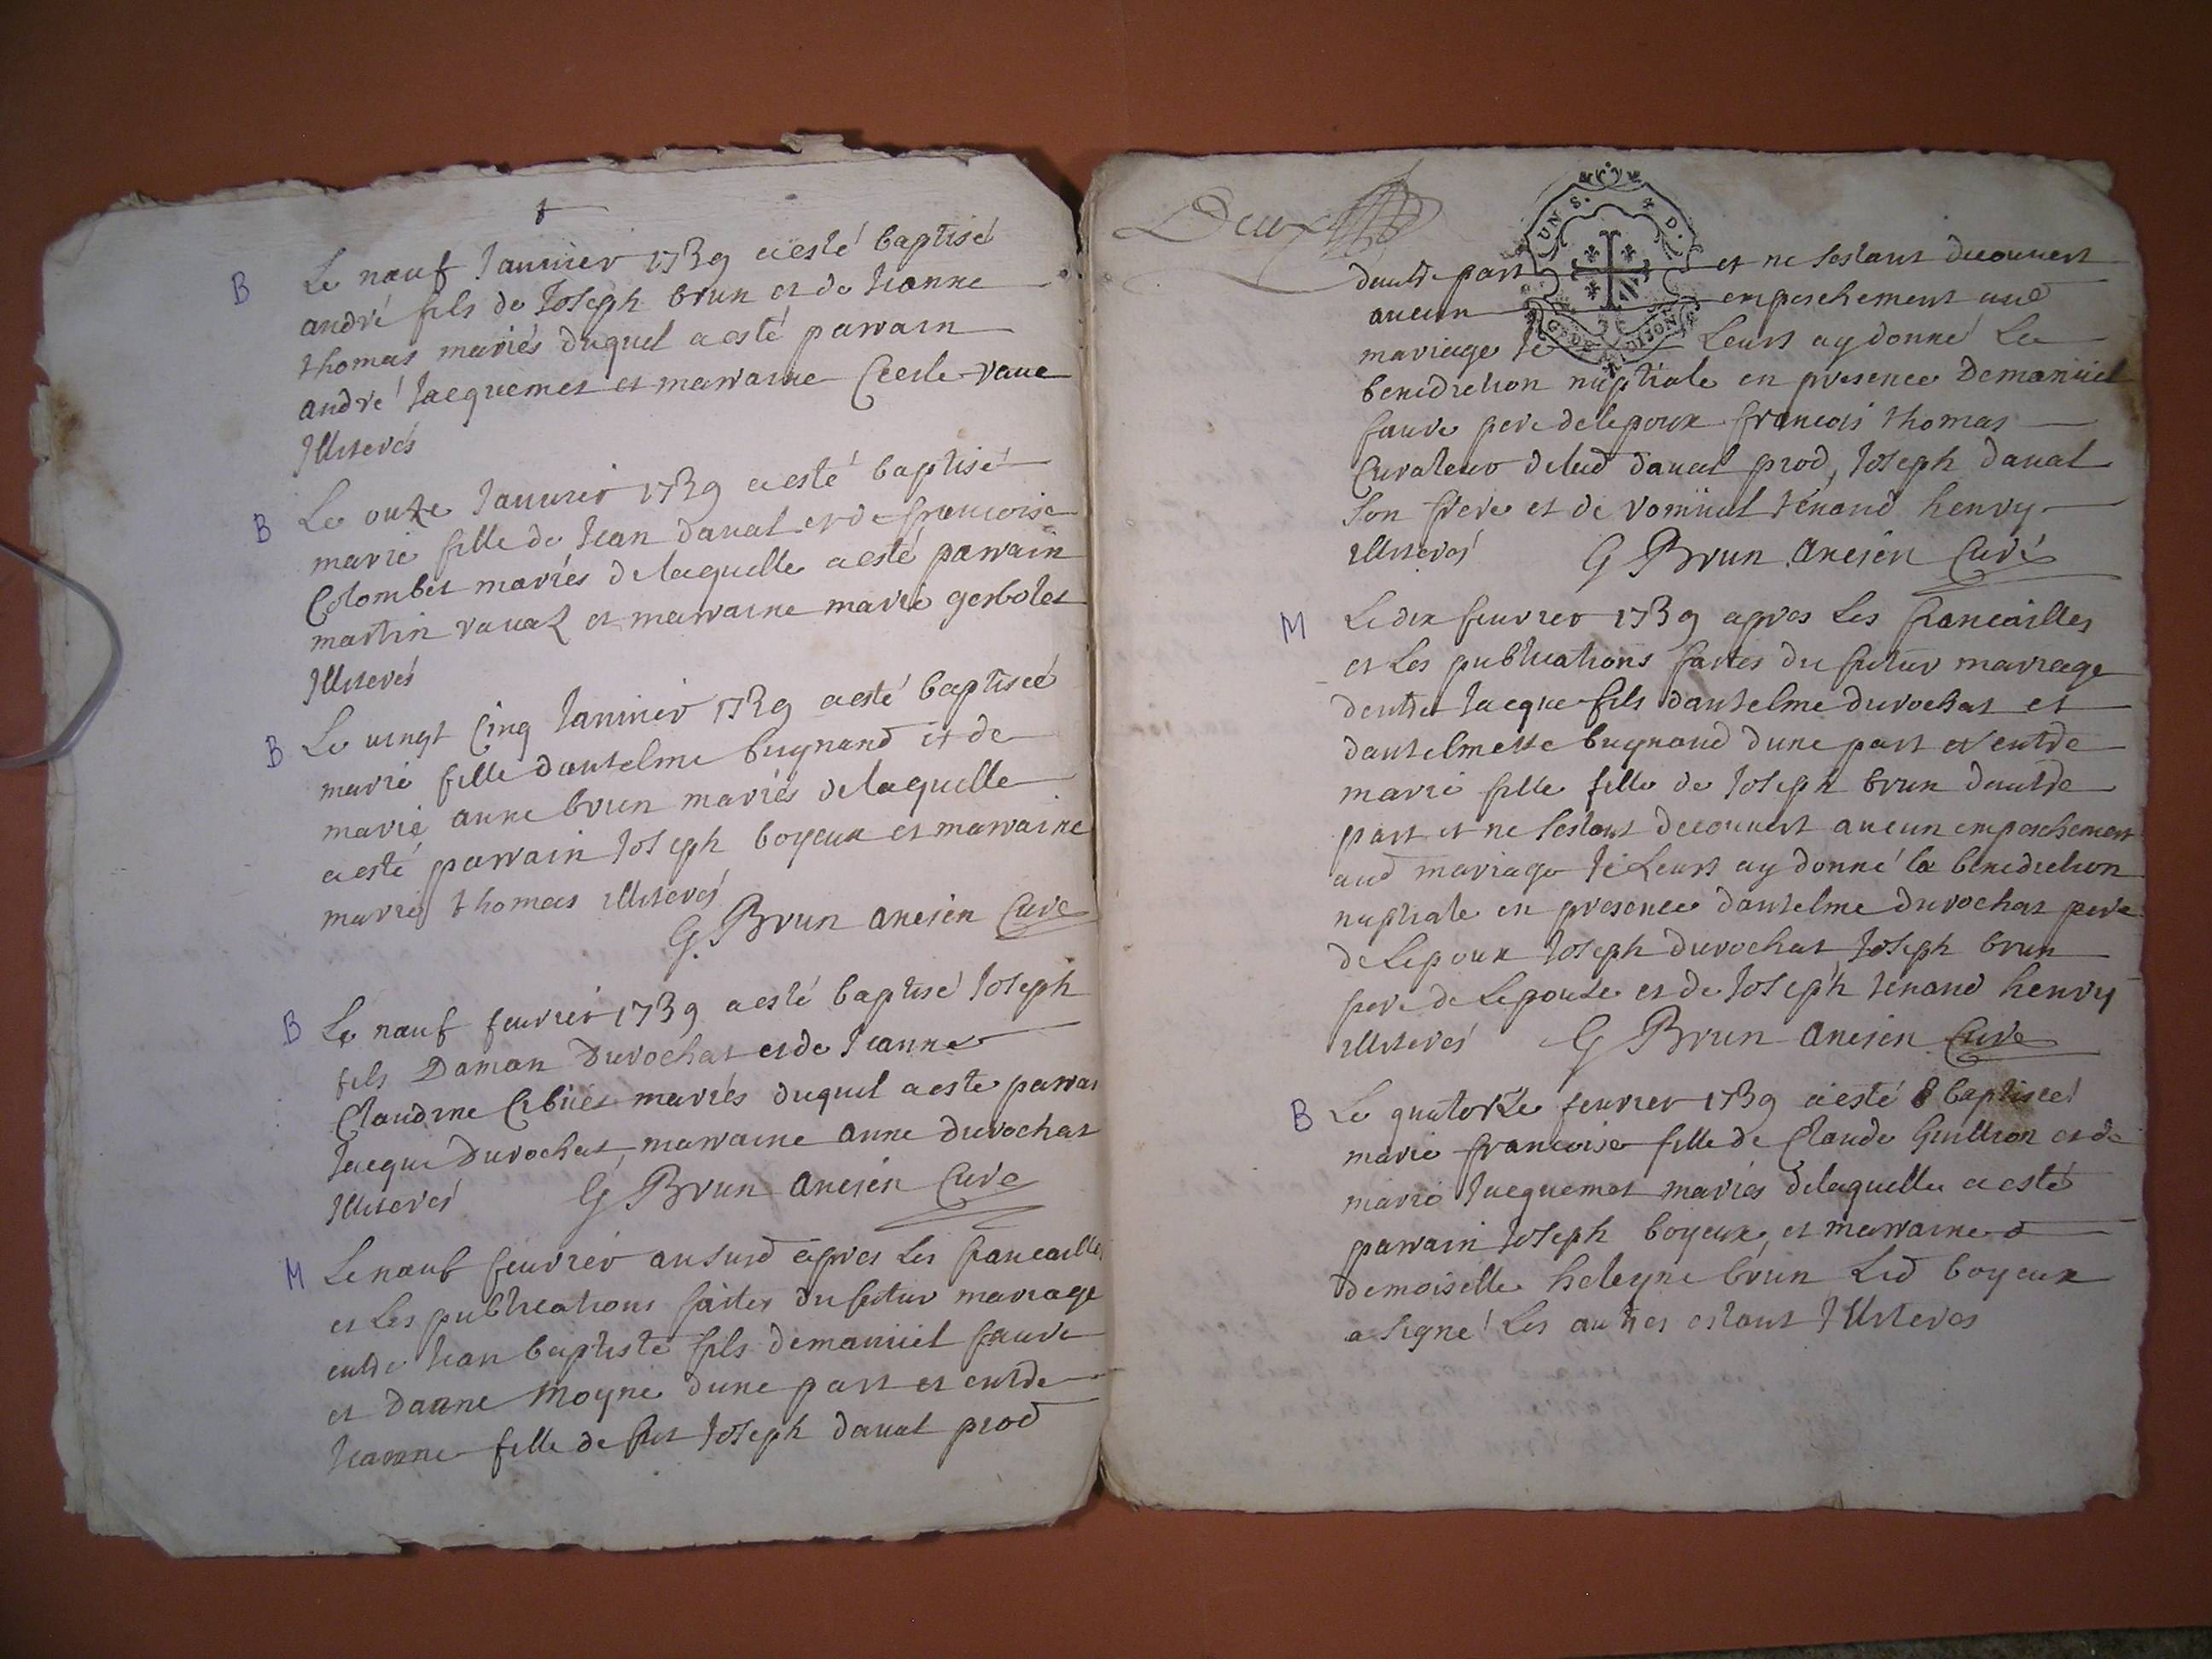 B Le nauf Januier 1739 a esté baptisé
andré fils de Joseph brun et de Jeanne
thomas mariés duquel a esté parrain
andré Jacquemet et marraine Cecile vaue
Illiterés
B Le onze Januier 1739 a esté baptisé
marie fille de Jean daual et de francoise
Colombet mariés de laquelle a esté parrain
martin rauaz et marraine marie gerbolet
Illiterés
B Le uingt Cinq Januier 1739 a esté baptisée
marie fille dantelme bugnand et de
marie anne brun mariés de laquelle
a esté parrain Joseph boyeux et marraine
marie thomas illiterés
G Brun ancien Curé
B Le nauf feurier 1739 a esté baptisé Joseph
fils Daman Durochat et de Jeanne
Claudine mariés duquel a esté parrai
Jacque Durochat, marraine anne durochat
Illiterés G Brun ancien Curé
M Le nauf feurier ansusd apres les fiancailles
et Les publications faites du futur mariage
entre Jean baptiste fils demanüel faure
et Danne Moyne dune part et entre
Jeanne fille de fut Joseph daual prod
Deux
UN S. 4 D.
GE DE DIJON
dautre part et ne sestant decouuert
aucun empeschement aud
mariage Je Leurs ay donné La
benediction nuptiale en presence Demanüel
faure pere delepoux francois thomas
Curateur delad daual prod, Joseph daual
son frere et de romüal tenand henry
illiterés G Brun ancien Curé
M Le dix feurier 1739 apres Les fiancailles
et Les publications faites du futur mariage
dentre Jacque fils dantelme durochat et
dantelmette bugnand dune part et entre
marie fille fille de Joseph brun dautre
part et ne sestant decouuert aucun empeschement
aud mariage Je Leurs ay donné la benediction
nuptiale en presence dantelme durochat pere
de Lepoux Joseph durochat Joseph brun
pere de Lepouse et de Joseph tenand henry
illiterés G Brun ancien Curé
B Le quatorze feurier 1739 a esté baptisée
marie francoise fille de Claude Guillion et de
marie Jacquemet mariés delaquelle a esté
parrain Joseph boyeux, et marraine
demoiselle heleyne brun Led boyeux
a signé Les autres estant Illiterés